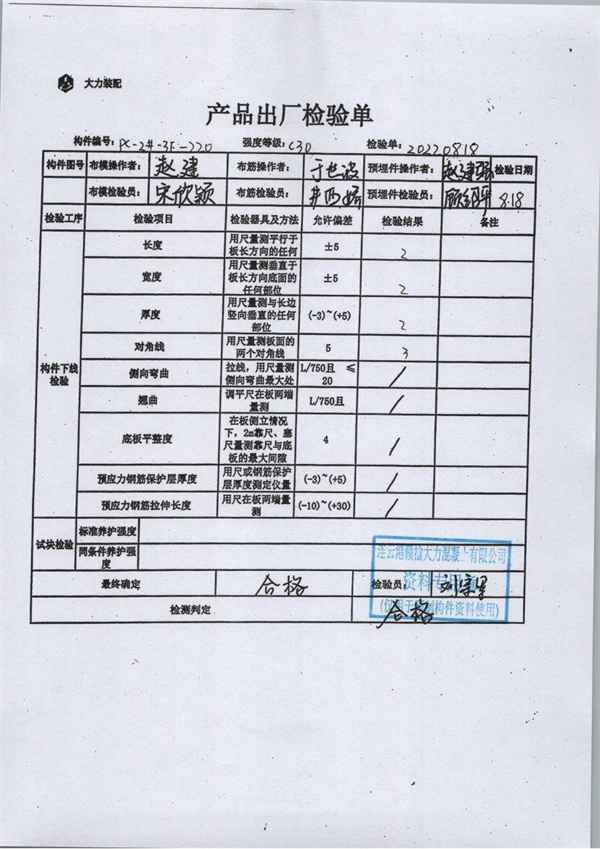 大力装配
产品出厂检验单
构件编号: PC-2#-3F-220 强度等级: C30 检验单: 20220818
构件图号 布模操作者: 赵建 布筋操作者: 于世波 预埋件操作者: 赵建强 检验日期
布模检验员: 宋欣颖 布筋检验员: 预埋件检验员: 8.18
检验工序 检验项目 检验器具及方法 允许偏差 检验结果 备注
构件下线检验
长度 用尺量测平行于板长方向的任何 ±5 2
宽度 用尺量测垂直于板长方向底面的任何部位 ±5 2
厚度 用尺量测与长边竖向垂直的任何部位 (-3)~(+5) 2
对角线 用尺量测板面的两个对角线 5 3
侧向弯曲 拉线，用尺量测侧向弯曲最大处 L/750且 ≤20 /
翘曲 调平尺在板两端量测 L/750且 /
底板平整度 在板侧立情况下，2m靠尺、塞尺量测靠尺与底板的最大间隙 4 /
预应力钢筋保护层厚度 用尺或钢筋保护层厚度测定仪量 (-3)~(+5) /
预应力钢筋拉伸长度 用尺在板两端量测 (-10)~(+30) /
试块检验 标准养护强度
同条件养护强度
最终确定 合格 检验员:
检测判定 合格
连云港赣榆大力混凝土有限公司
资料专用章